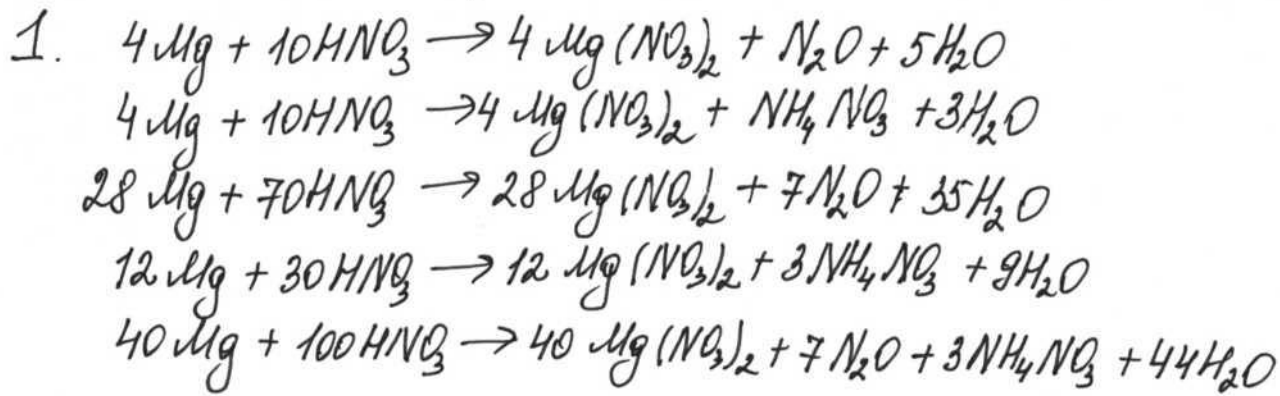 1. 4Mg + 10HNO₃ → 4Mg(NO₃)₂ + N₂O + 5H₂O
4Mg + 10HNO₃ → 4Mg(NO₃)₂ + NH₄NO₃ + 3H₂O
28Mg + 70HNO₃ → 28Mg(NO₃)₂ + 7N₂O + 35H₂O
12Mg + 30HNO₃ → 12Mg(NO₃)₂ + 3NH₄NO₃ + 9H₂O
40Mg + 100HNO₃ → 40Mg(NO₃)₂ + 7N₂O + 3NH₄NO₃ + 44H₂O